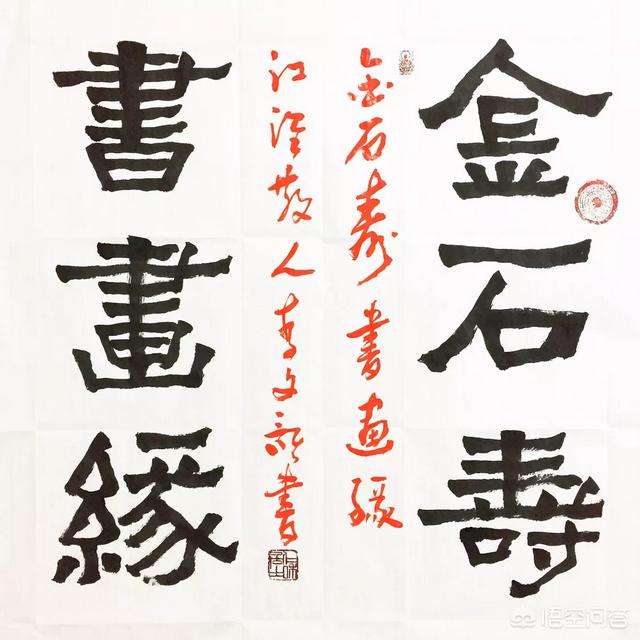 金石壽
金石寿書画缘
江淮散人李文新書
書畫緣
悟空问答